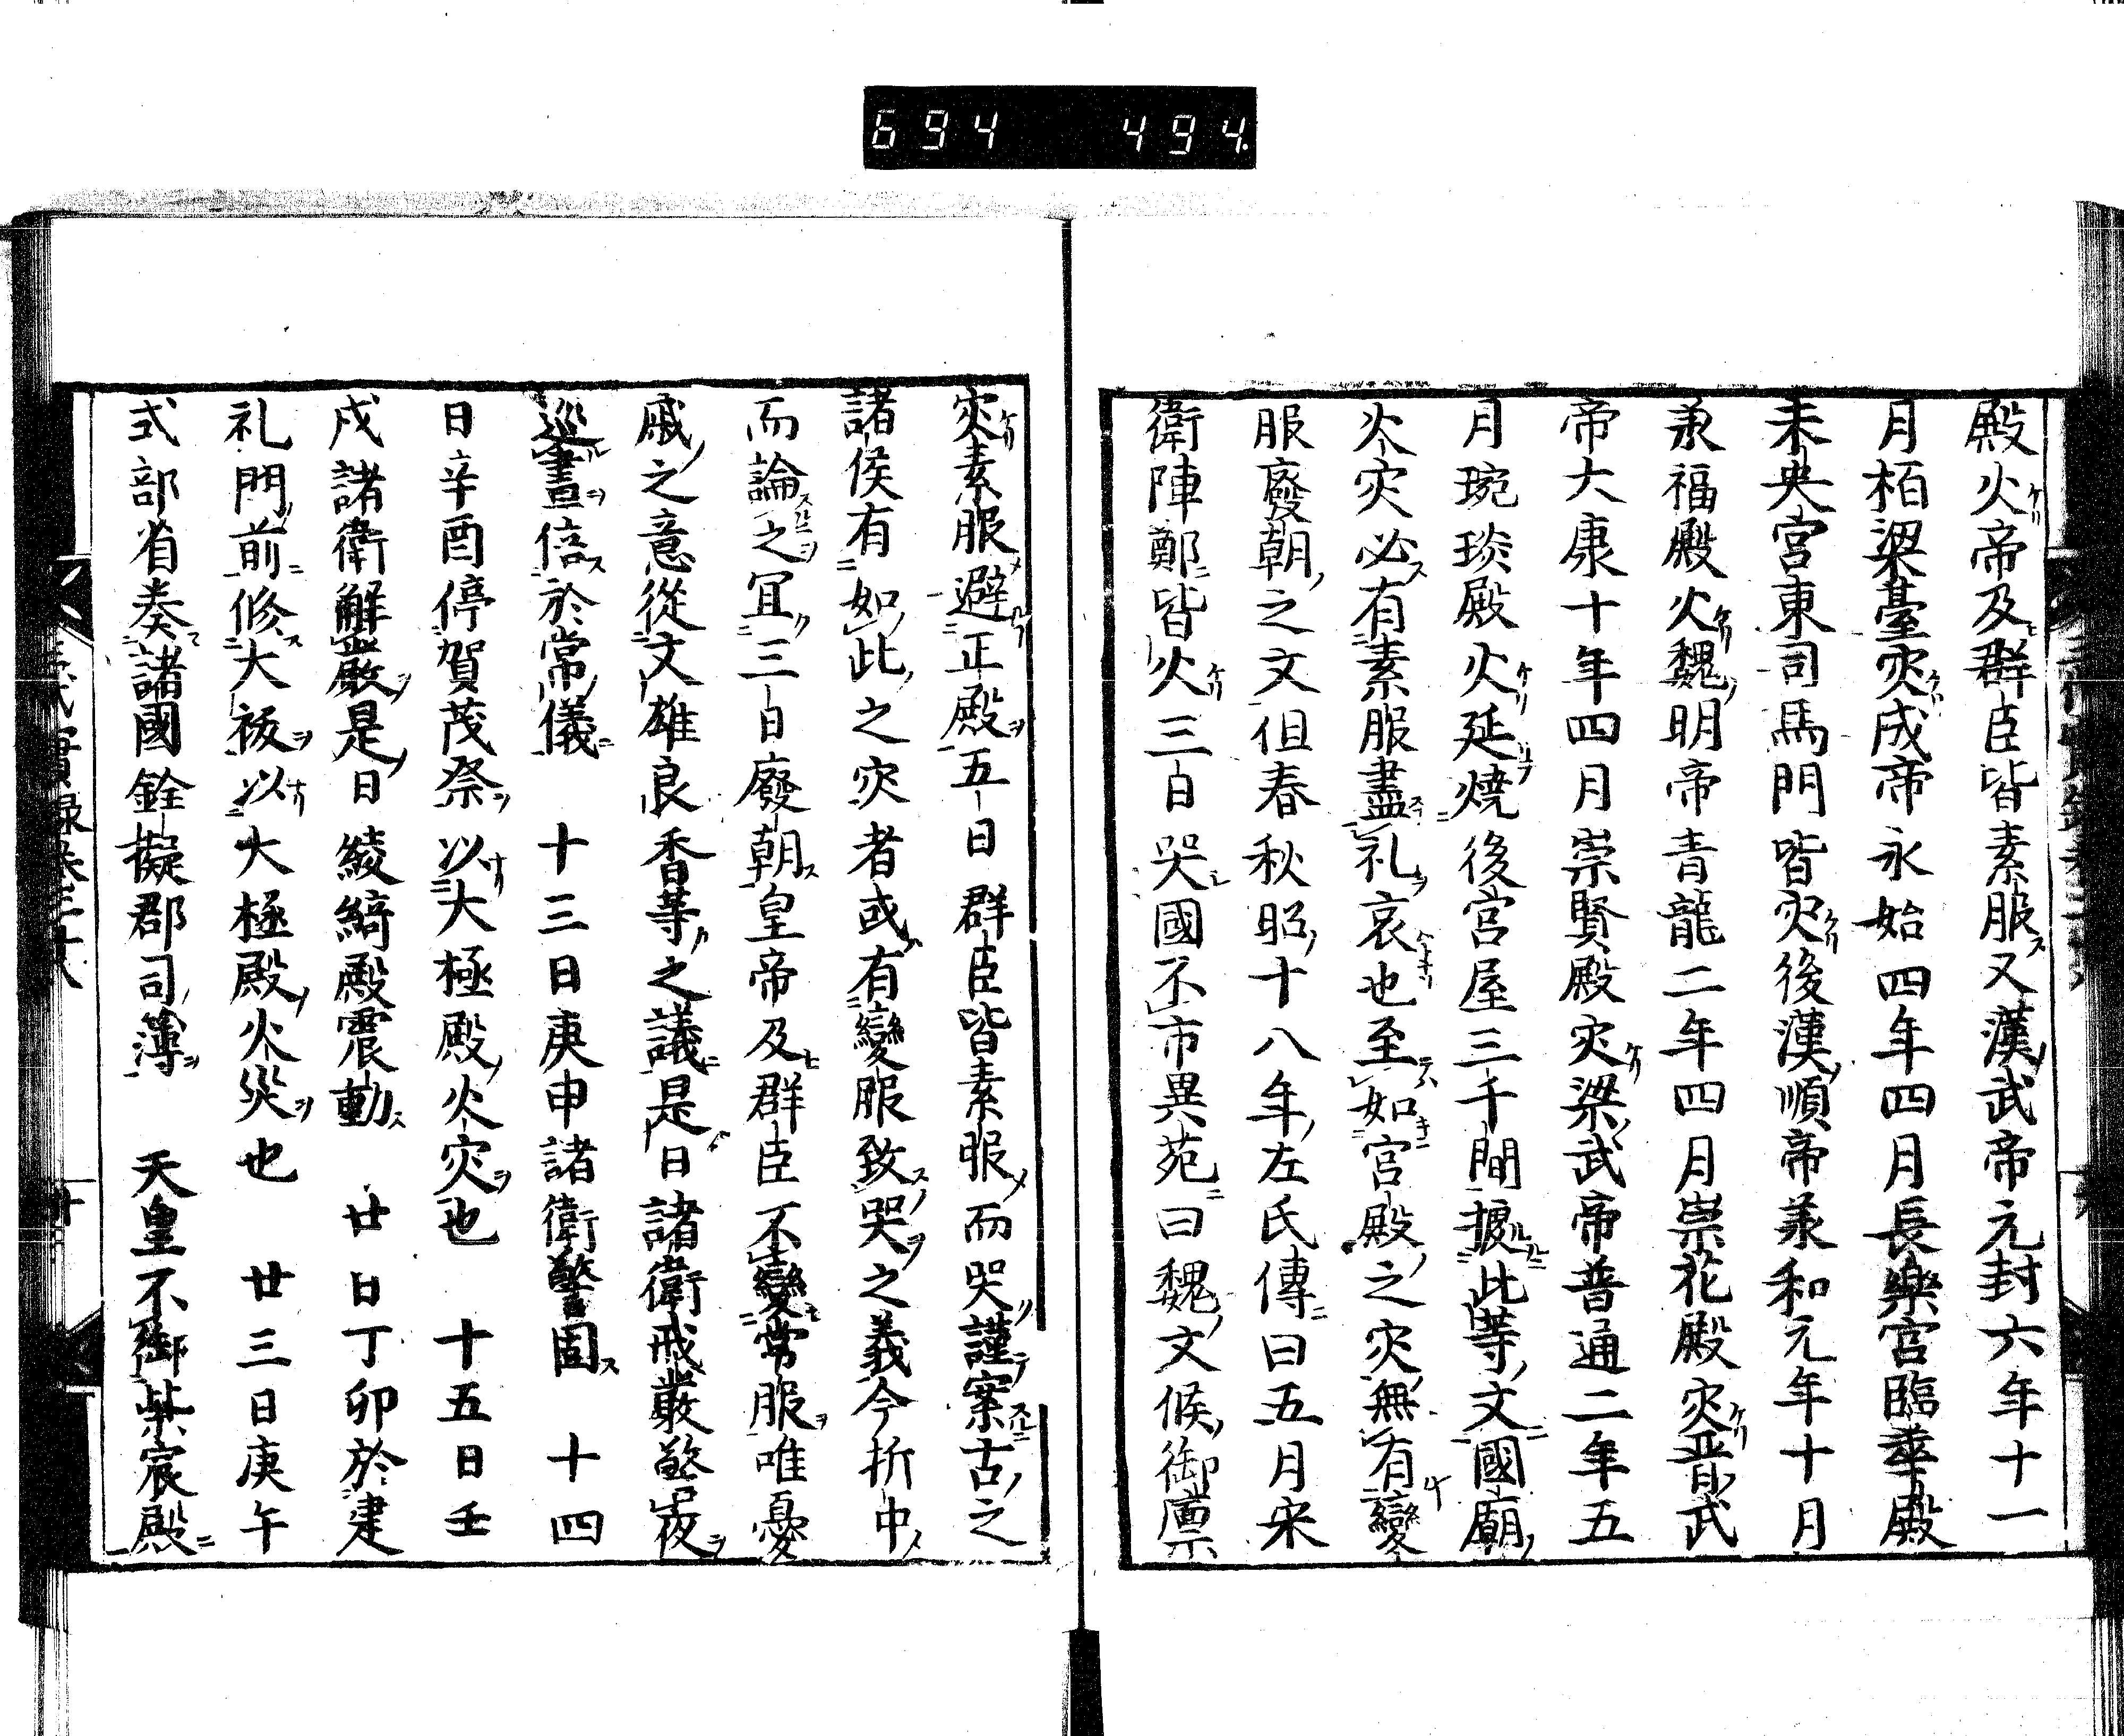 694 494.
殿火帝及群臣皆素服又漢武帝元封六年十一
月栢梁臺灾成帝永始四年四月長樂宮臨華殿
未央宮東司馬門皆灾後漢順帝羕和元年十月
羕福殿火魏明帝青龍二年四月崇花殿灾晋武
帝大康十年四月崇賢殿灾梁武帝普通二年五
月琬琰殿火延燒後宮屋三千間據此等文國廟
火灾必有素服盡礼哀也至如宮殿之灾無有變
服廢朝之文但春秋昭十八年左氏傳曰五月宋
衛陣鄭皆火三日哭國不市異苑曰魏文候御廪
灾素服避正殿五日群臣皆素服而哭謹案古之
諸侯有如此之灾者或有變服致哭之義今折中
而論之冝三日廢朝皇帝及群臣不變常服唯憂
慼之意從文雄良香等之議是日諸衛戒嚴警夜
巡晝倍於常儀 十三日庚申諸衛警固 十四
日辛酉停賀茂祭以大極殿火灾也 十五日壬
戌諸衛解嚴是日綾綺殿震動 廿日丁卯於建
礼門前修大祓以大極殿火災也 廿三日庚午
式部省奏諸國銓擬郡司簿 天皇不御紫宸殿